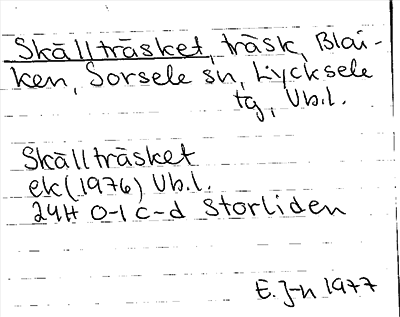 Skällträsket, träsk, Blai-
ken, Sorsele sn, Lycksele
tg, Vb.l.
Skällträsket
ek (1976) Vb.l.
24H 0-1 c-d Storliden
E. J-n 1977